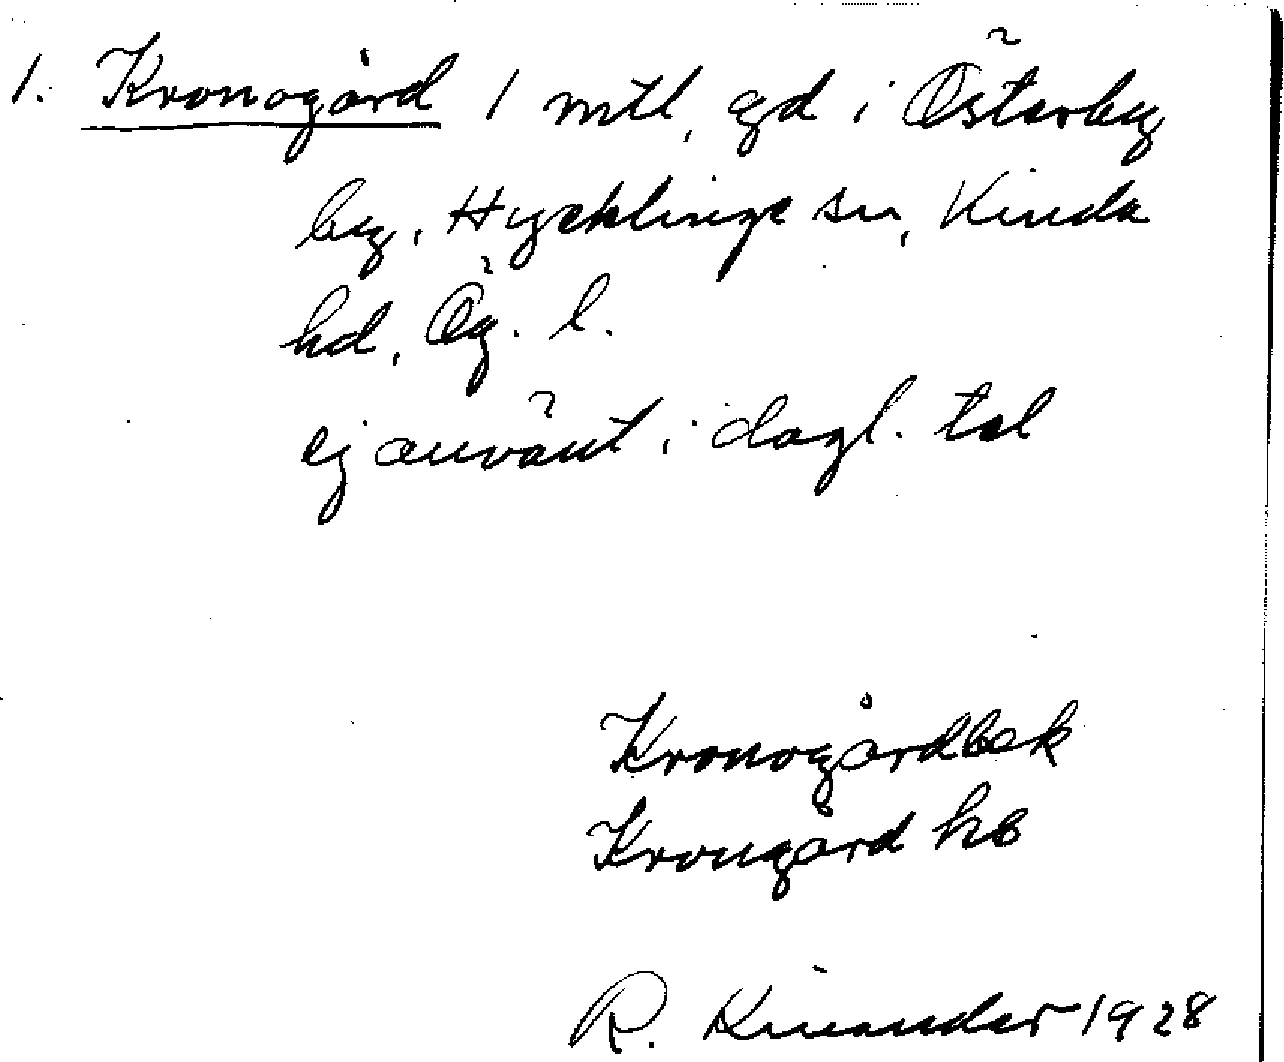 1. Kronogård 1 mtl, gd i Österby
by, Hycklinge sn, Kinda
hd, Ög. l.
ej använt i dagl. tal
Kronogård bek
Krongård hb
R. Kinander 1928